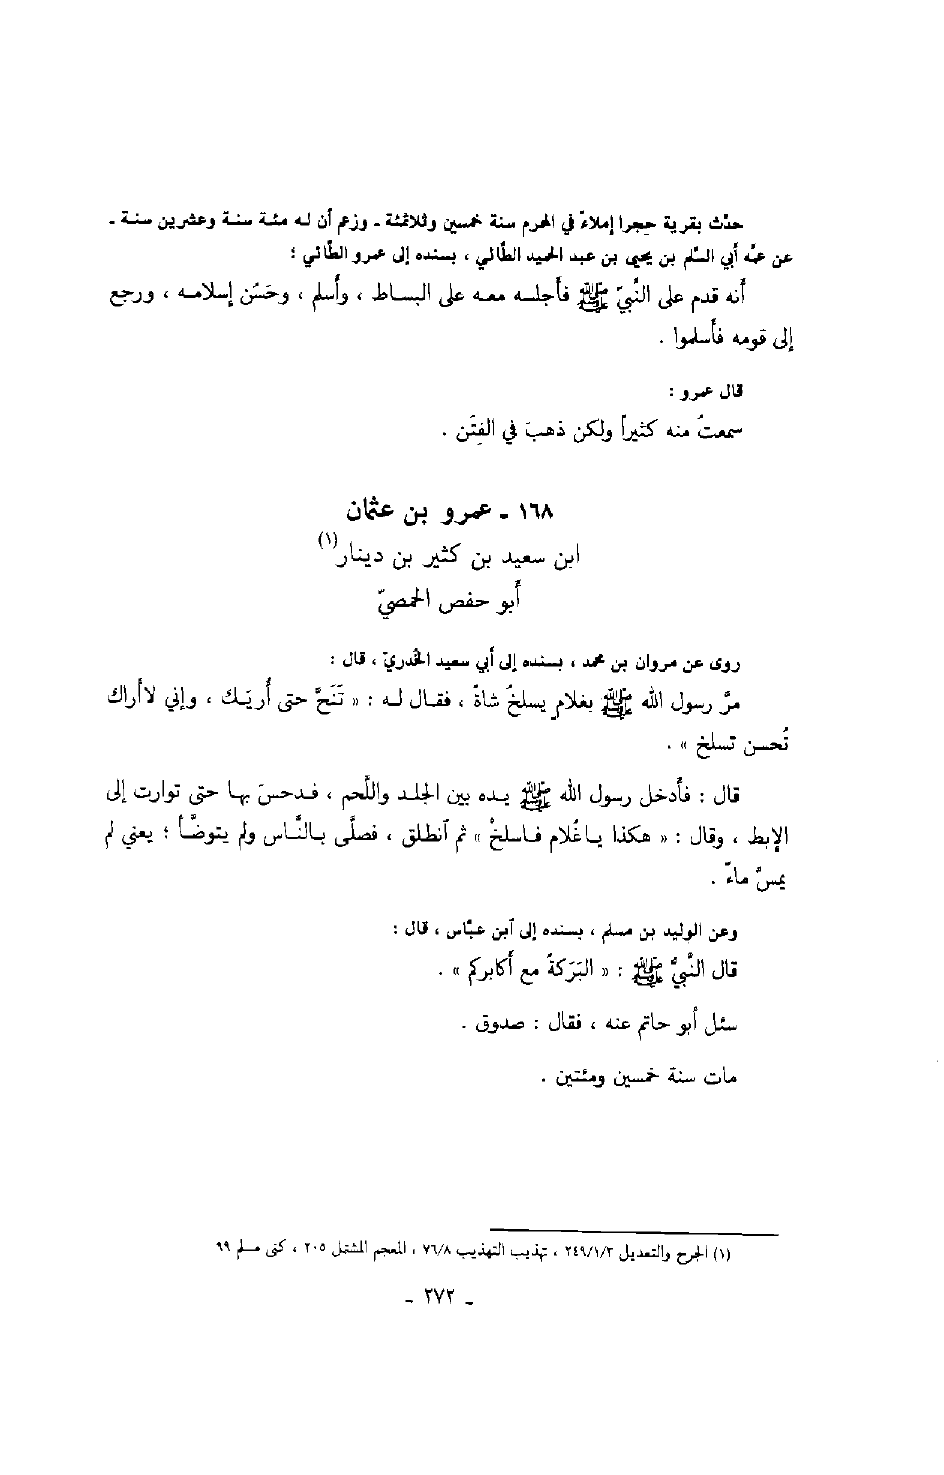 حدّث بقرية حجرا إملاءً في المحرم سنة خمسين وثلاثمئة ـ وزعم أن له مئة سنة وعشرين سنة ـ
عن عمّه أبي السّلم بن يحيى بن عبد الحميد الطّائي ، بسنده إلى عمرو الطّائي ؛
أنه قدم على النّبيّ ﷺ فأجلسه معه على البساط ، وأسلم ، وحَسُن إسلامه ، ورجع
إلى قومه فأسلموا .
قال عمرو :
سمعتُ منه كثيراً ولكن ذهبَ في الفِتَن .
١٦٨ ـ عمرو بن عثمان
ابن سعيد بن كثير بن دينار(١)
أبو حفص الحمصيّ
روى عن مروان بن محمد ، بسنده إلى أبي سعيد الخُدريّ ، قال :
مرَّ رسول الله ﷺ بغلامٍ يسلخُ شاةً ، فقال له : « تَنَحَّ حتى أُريَك ، وإني لاأراك
تُحسن تسلخ » .
قال : فأدخل رسول الله ﷺ يده بين الجلد واللَّحم ، فدحسَ بها حتى توارت إلى
الإبط ، وقال : « هكذا ياغُلام فاسلخْ » ثم ٱنطلق ، فصلَّى بالنَّاس ولم يتوضَّأ ؛ يعني لم
يمسَّ ماءً .
وعن الوليد بن مسلم ، بسنده إلى ٱبن عبَّاس ، قال :
قال النَّبيُّ ﷺ : « البَرَكةُ مع أكابركم » .
سئل أبو حاتم عنه ، فقال : صدوق .
مات سنة خمسين ومئتين .
(١) الجرح والتعديل ٢٤٩/١/٣ ، تهذيب التهذيب ٧٦/٨ ، المعجم المشتمل ٢٠٥ ، كنى مسلم ٩٩
ـ ٢٧٢ ـ